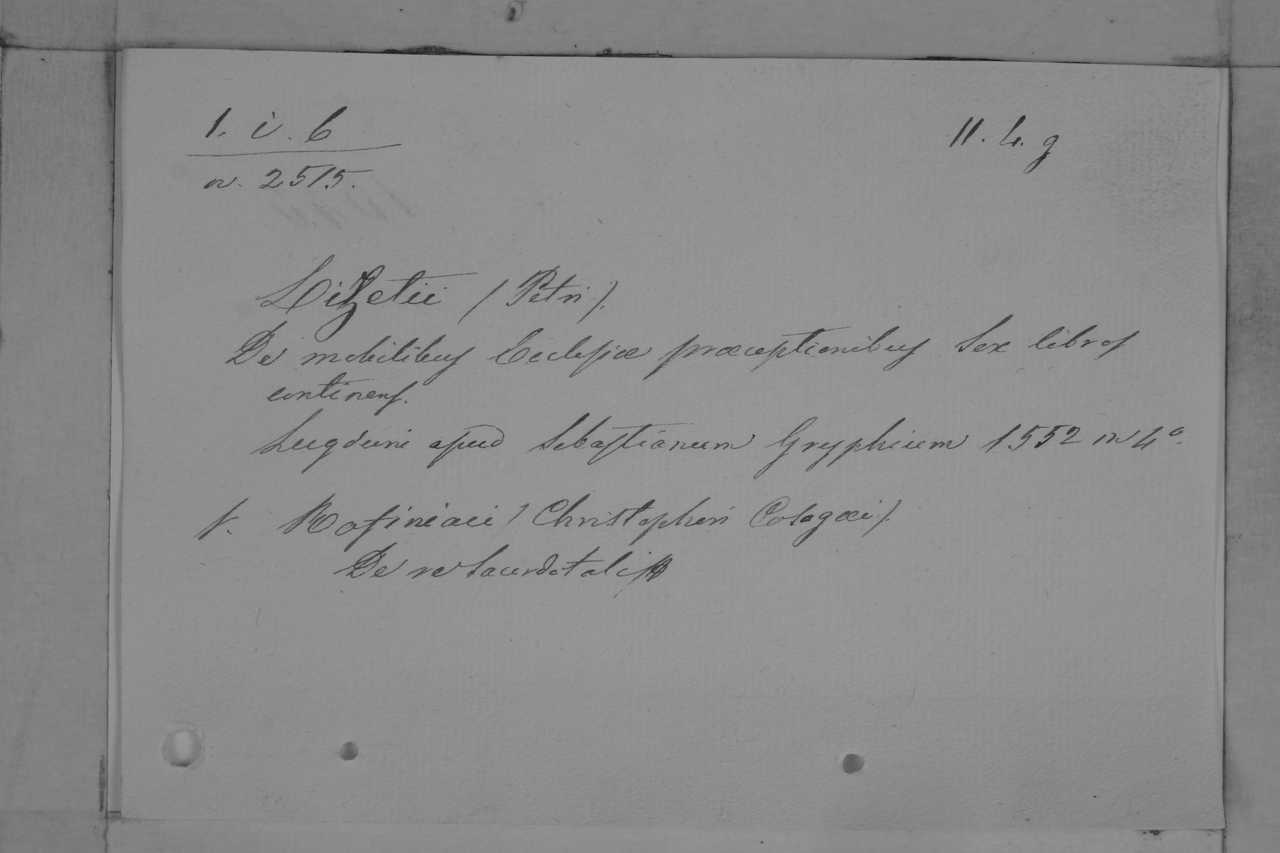 1. i. 6
11. 4. g
n. 2515.
Lizetii (Petri).
De mobilibus Ecclesiæ præceptionibus sex libros
continens.
Lugduni apud Sebastianum Gryphium 1552 in 4º.
V. Rofiniaci (Christophori Cotagæi).
De re sacerdotali